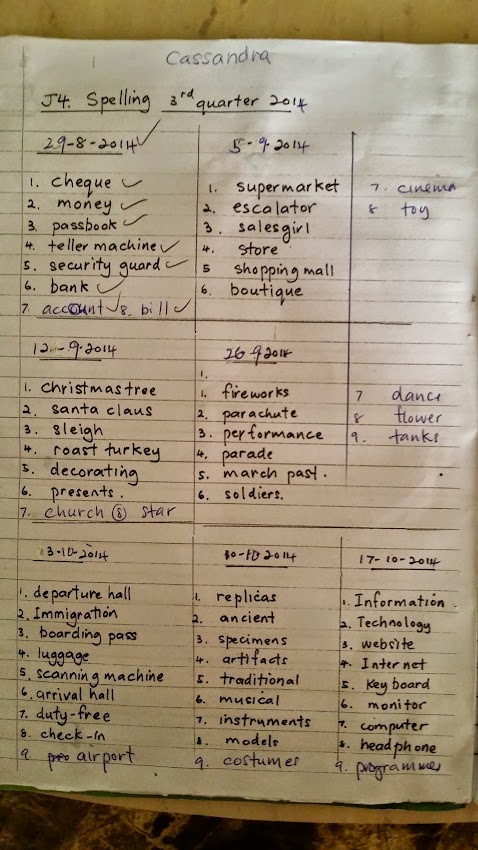 Cassandra
J4. Spelling 3rd quarter 2014
29-8-2014
1. cheque
2. money
3. passbook
4. teller machine
5. security guard
6. bank
7. account 8. bill
5-9-2014
1. supermarket
2. escalator
3. salesgirl
4. store
5 shopping mall
6. boutique
7. cinema
8 toy
12-9-2014
1. christmas tree
2. santa claus
3. sleigh
4. roast turkey
5. decorating
6. presents.
7. church 8 star
26-9-2014
1.
1. fireworks
2. parachute
3. performance
4. parade
5. march past.
6. soldiers.
7 dance
8 flower
9. tanks
3-10-2014
1. departure hall
2. Immigration
3. boarding pass
4. luggage
5. scanning machine
6. arrival hall
7. duty-free
8. check-in
9. airport
10-10-2014
1. replicas
2. ancient
3. specimens
4. artifacts
5. traditional
6. musical
7. instruments
8. models
9. costumes
17-10-2014
1. Information.
2. Technology
3. website
4. Internet
5. Keyboard
6. monitor
7. computer
8. headphone
9. programmes